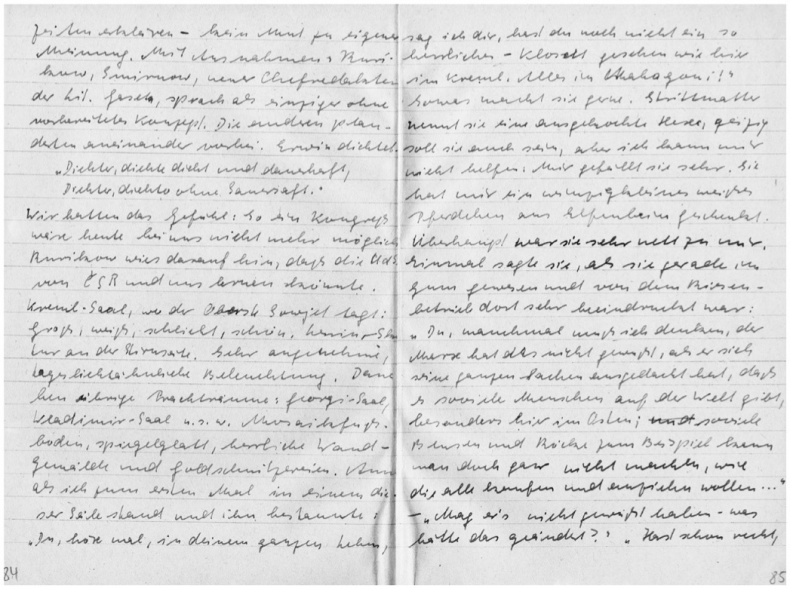 zeiten erklären – kein Mut zu eigener
Meinung. Mit Ausnahmen: Rurikow,
Smirnow, neuer Chefredakteur
der Lit. Gaseta, sprach als einziger ohne
vorbereitetes Konzept. Die anderen plau-
derten aneinander vorbei. Erwin dichtet:
„Dichter, dichte dicht und dauerhaft,
Dichter, dichte ohne Sauersaft."
Wir hatten das Gefühl: So ein Kongreß
wäre heute bei uns nicht mehr möglich.
Rurikow wies darauf hin, daß die UdS
von ČSR und uns lernen könnte.
Kreml-Saal, wo der Oberste Sowjet tagt:
Groß, weiß, schlicht, schön. Lenin-
tur an der Stirnseite. Sehr angenehme,
tageslichtähnliche Beleuchtung. Dane
ben übrige Prachträume: Georgi-Saal,
Wladimir-Saal u.s.w. Mosaikfuß-
böden, spiegelglatt, herrliche Wand-
gemälde und Goldschnitzereien. Anna
als ich zum ersten Mal in einem die-
ser Säle stand und ihn bestaunte:
„Du, höre mal, in deinem ganzen Leben,
84
sag ich dir, hast du noch nicht ein so
herrliches – Klosett gesehen wie hier
im Kreml. Alles in Mahagoni!"
Sowas macht sie gerne. Strittmatter
nennt sie eine ausgekochte Hexe, geizig
soll sie auch sein, aber ich kann mir
nicht helfen: Mir gefällt sie sehr. Sie
hat mir ein winzigkleines weißes
Pferdchen aus Elfenbein geschenkt.
Überhaupt war sie sehr nett zu mir.
Einmal sagte sie, als sie gerade im
Gum gewesen und von dem Riesen-
betrieb dort sehr beeindruckt war:
„Du, manchmal muß ich denken, der
Marx hat das nicht gewußt, als er sich
seine ganzen Sachen ausgedacht hat, daß
es soviele Menschen auf der Welt gibt,
besonders hier im Osten; und soviele
Blusen und Röcke zum Beispiel kann
man doch gar nicht machen, wie
die alle kaufen und anziehen wollen..."
– „Mag er's nicht gewußt haben – was
hätte das geändert?" „Hast schon recht,
85